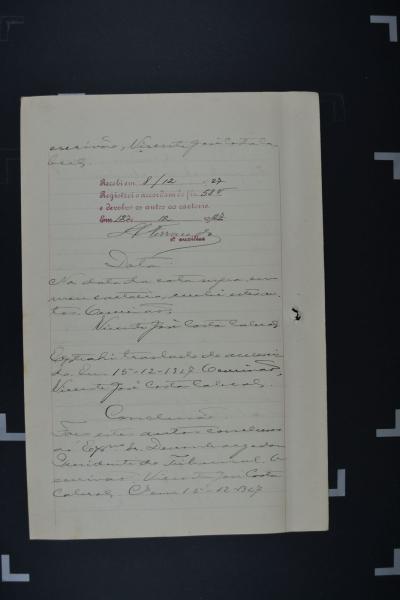 escrivão, Vicente José Costa Ca
bral.
Recebi em 8/12 27
Registrei o accordam de fls 58 v
e devolvo os autos ao cartorio.
Em 12 12 927
o auxiliar
Data
Na data da cota supra, em
meu cartorio, recebi estes au
tos. O escrivão,
Vicente José Costa Cabral
Extrahi traslado do accor
dão. Em 15-12-1927. O escrivão,
Vicente José Costa Cabral.
Conclusão
Faço estes autos conclusos
ao Exmo Sr. Desembargador
Presidente do Tribunal. O
escrivão, Vicente José Costa
Cabral. Cls em 15-12-1927